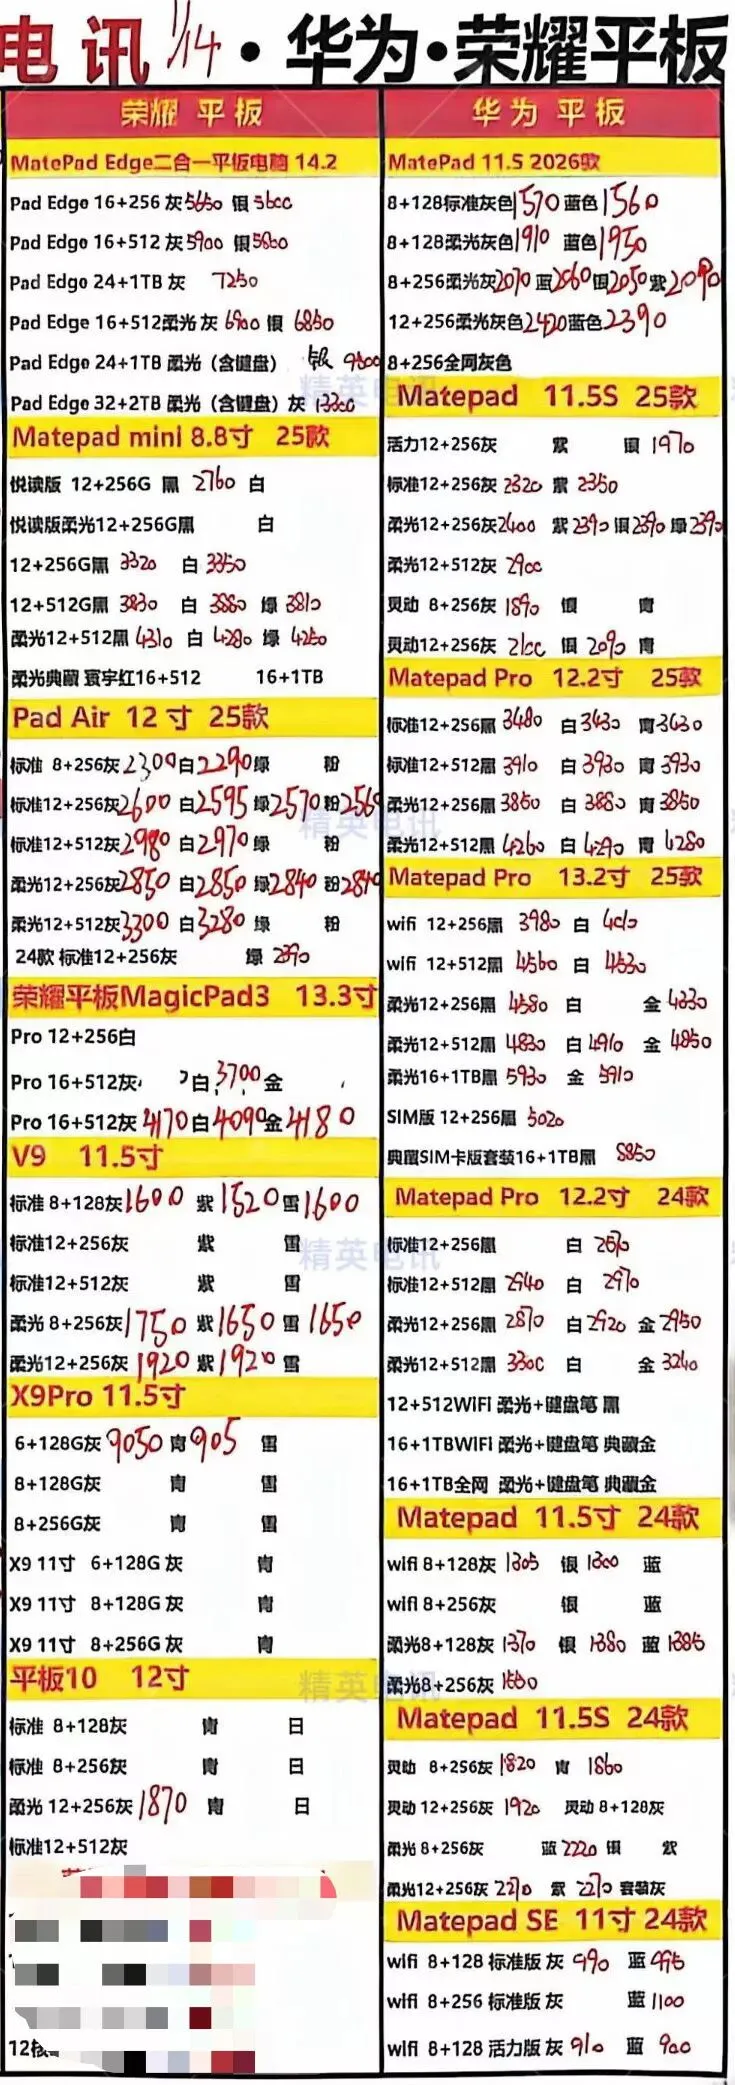 电讯 1/14·华为·荣耀平板
荣耀 平板
MatePad Edge二合一平板电脑 14.2
Pad Edge 16+256 灰5650 银5600
Pad Edge 16+512 灰5900 银5800
Pad Edge 24+1TB 灰 7250
Pad Edge 16+512柔光 灰 6900 银 6850
Pad Edge 24+1TB 柔光（含键盘） 银 9800
Pad Edge 32+2TB 柔光（含键盘）灰
Matepad mini 8.8寸 25款
悦读版 12+256G 黑 2760 白
悦读版柔光12+256G黑 白
12+256G黑 3320 白 3350
12+512G黑 3830 白 3880 绿 3810
柔光12+512黑 4310 白 4280 绿 4250
柔光典藏 寰宇红16+512 16+1TB
Pad Air 12寸 25款
标准 8+256灰2300白2290绿 粉
标准12+256灰2600 白2595 绿2570粉2560
标准12+512灰2980 白2970绿 粉
柔光12+256灰2850 白2850 绿2840 粉2840
柔光12+512灰3300 白3280 绿 粉
24款 标准12+256灰 绿 2390
荣耀平板MagicPad3 13.3寸
Pro 12+256白
Pro 16+512灰 白3700金
Pro 16+512灰 4170白4090金4180
V9 11.5寸
标准 8+128灰1600 紫1520雪1600
标准12+256灰 紫 雪
标准12+512灰 紫 雪
柔光 8+256灰1750 紫1650 雪 1650
柔光12+256灰 1920 紫 1920 雪
X9Pro 11.5寸
6+128G灰 9050 青905 雪
8+128G灰 青 雪
8+256G灰 青 雪
X9 11寸 6+128G 灰 青
X9 11寸 8+128G 灰 青
X9 11寸 8+256G 灰 青
平板10 12寸
标准 8+128灰 青 日
标准 8+256灰 青 日
柔光 12+256灰 1870 青 日
标准12+512灰
华为 平板
MatePad 11.5 2026款
8+128标准灰色1570蓝色1560
8+128柔光灰色1910 蓝色1950
8+256柔光灰2070 蓝2060银2050紫2090
12+256柔光灰色2420蓝色2390
8+256全网灰色
Matepad 11.5S 25款
活力12+256灰 紫 银 1970
标准12+256灰 2320 紫 2350
柔光12+256灰2400 紫2390 银2390 绿2390
柔光12+512灰 2900
灵动 8+256灰 1890 银 青
灵动12+256灰 2100 银 2090 青
Matepad Pro 12.2寸 25款
标准12+256黑 3480 白3430 青3430
标准12+512黑 3910 白 3930 青 3930
柔光12+256黑 3850 白 3880 青 3850
柔光12+512黑 4260 白 4290 青 4280
Matepad Pro 13.2寸 25款
wifi 12+256黑 3980 白 4010
wifi 12+512黑 4560 白 4530
柔光12+256黑 4580 白 金
柔光12+512黑 4830 白 4910 金 4850
柔光16+1TB黑 5930 金 5910
SIM版 12+256黑 5020
典藏SIM卡版套装16+1TB黑 5850
Matepad Pro 12.2寸 24款
标准12+256黑 白
标准12+512黑 2940 白 2970
柔光12+256黑 2870 白 2920 金 2950
柔光12+512黑 3300 白 金 3240
12+512WIFI 柔光+键盘笔 黑
16+1TBWIFI 柔光+键盘笔 典藏金
16+1TB全网 柔光+键盘笔 典藏金
Matepad 11.5寸 24款
wifi 8+128灰 1305 银 1300 蓝
wifi 8+256灰 银 蓝
柔光8+128灰 1370 银 1380 蓝 1385
柔光8+256灰 1550
Matepad 11.5S 24款
灵动 8+256灰 1820 青 1860
灵动 12+256灰 1920 灵动 8+128灰
柔光 8+256灰 蓝 2220 银 紫
柔光12+256灰 2270 紫 2270 套装灰
Matepad SE 11寸 24款
wifi 8+128 标准版 灰 990 蓝 995
wifi 8+256 标准版 灰 蓝 1100
wifi 8+128 活力版 灰 910 蓝 900
精英电讯
精英电讯
精英电讯
精英电讯